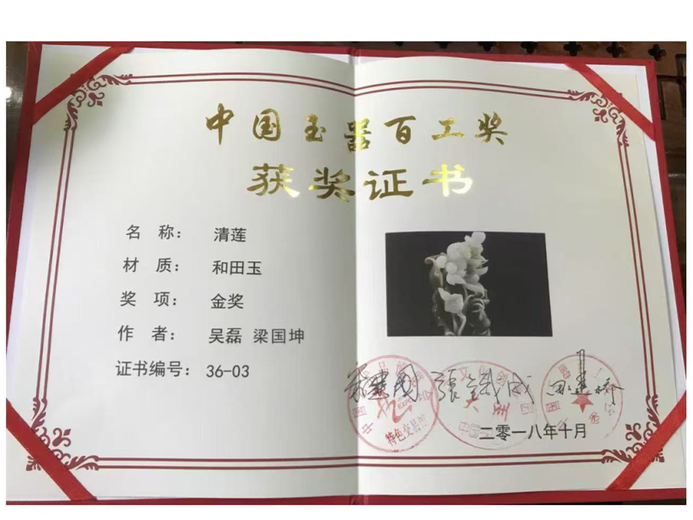 中国玉器百工奖
获奖证书
名 称： 清莲
材 质： 和田玉
奖 项： 金奖
作 者： 吴磊 梁国坤
证书编号： 36-03
二零一八年十月